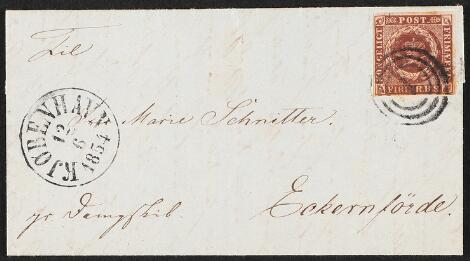 Til
KONGELIGT POST FRIMÆRKE
FIRE R.B.S.
Marie Schnitter.
KJØBENHAVN
12
6
1854
pr Dampskib.
Eckernförde.